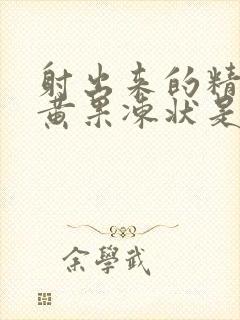 射出来的精
黄果冻状是
余學武